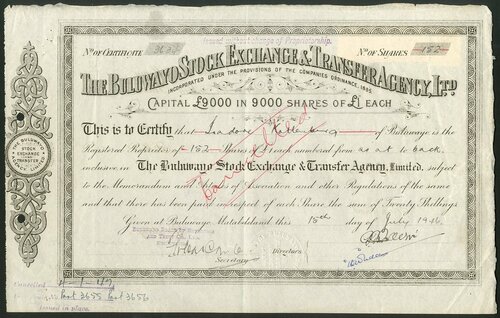 Issued without change of Proprietorship.
No. OF CERTIFICATE
No. OF SHARES 152
THE BULUWAYO STOCK EXCHANGE & TRANSFER AGENCY, LTD
INCORPORATED UNDER THE PROVISIONS OF THE COMPANIES ORDINANCE, 1895
CAPITAL £9000 IN 9000 SHARES OF £1 EACH
This is to Certify that Isadore of Buluwayo is the
Registered Proprietor of 152 Shares of £1 each numbered from as at to back
inclusive in The Buluwayo Stock Exchange & Transfer Agency, Limited, subject
to the Memorandum and Articles of Association and other Regulations of the same
and that there has been paid in respect of each Share the sum of Twenty Shillings
Given at Buluwayo Matabeleland this 15th day of July 1946
Cancelled
Directors
Secretary
THE BULUWAYO
STOCK
EXCHANGE
& TRANSFER
AGENCY LIMITED
Cancelled 4-1-47
Cert 3655 Cert 3656
issued in place.